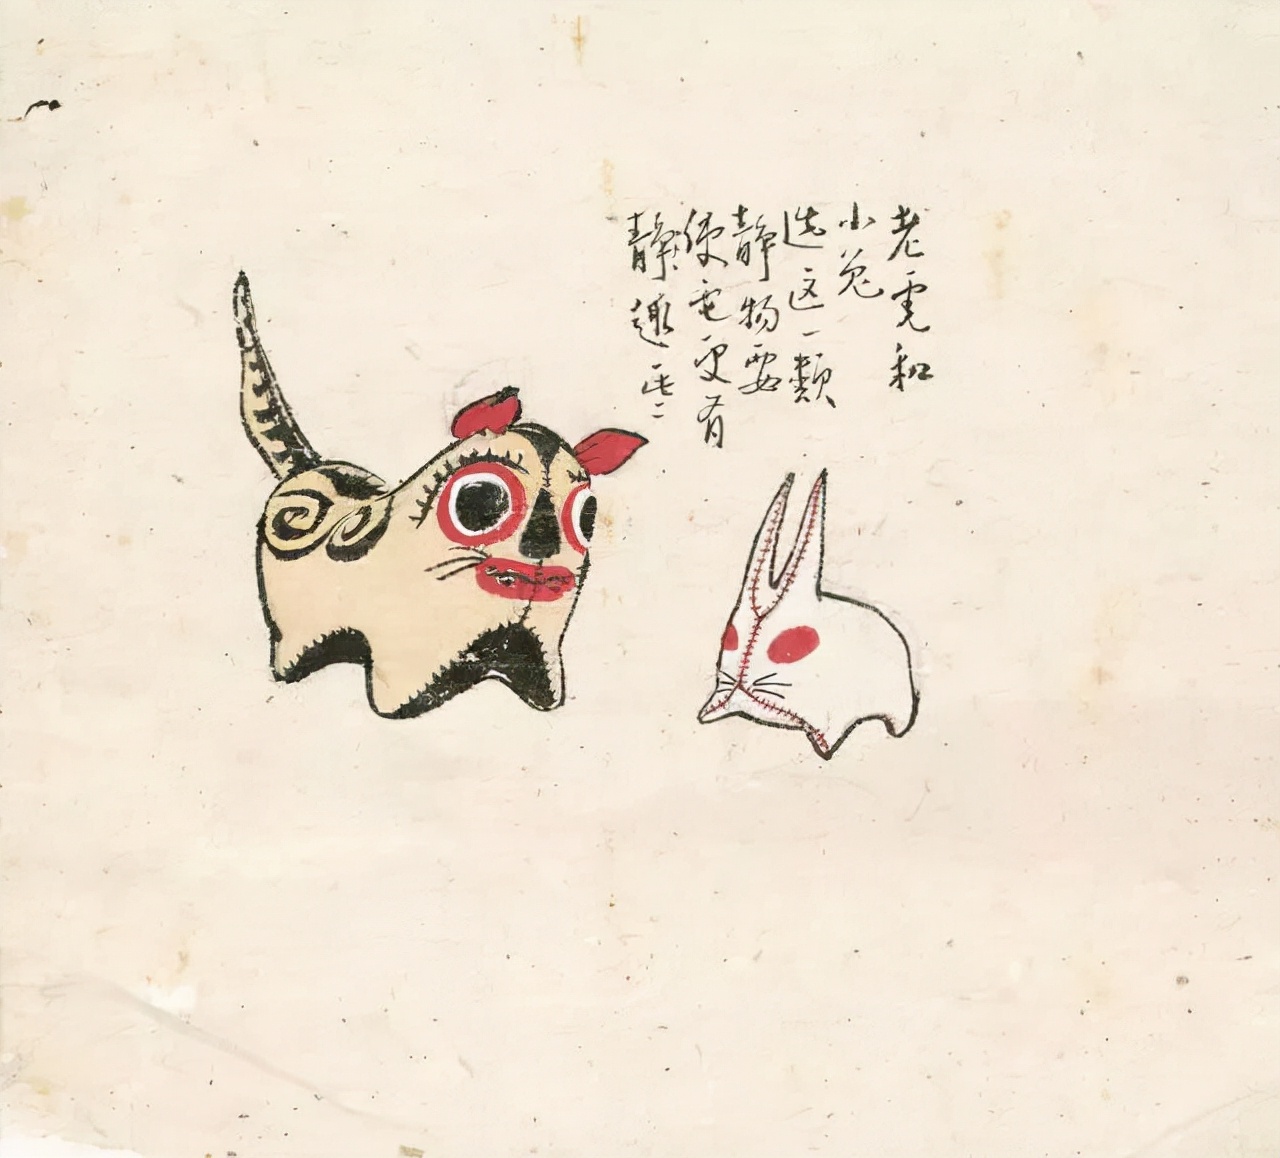 老虎和
小兔
选这一類
静物要
使它更有
静趣些